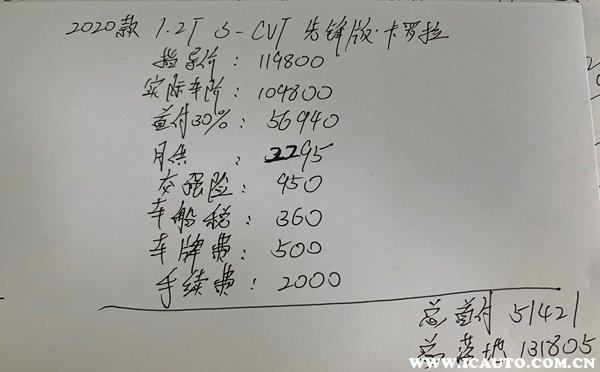 2020款 1.2T S-CVT 先锋版·卡罗拉
指导价: 119800
实际车价: 109800
首付30%: 56940
月供 : 2295
交强险: 950
车船税: 360
车牌费: 500
手续费: 2000
总首付 51421
总落地 131805
www.ICAUTO.com.cn